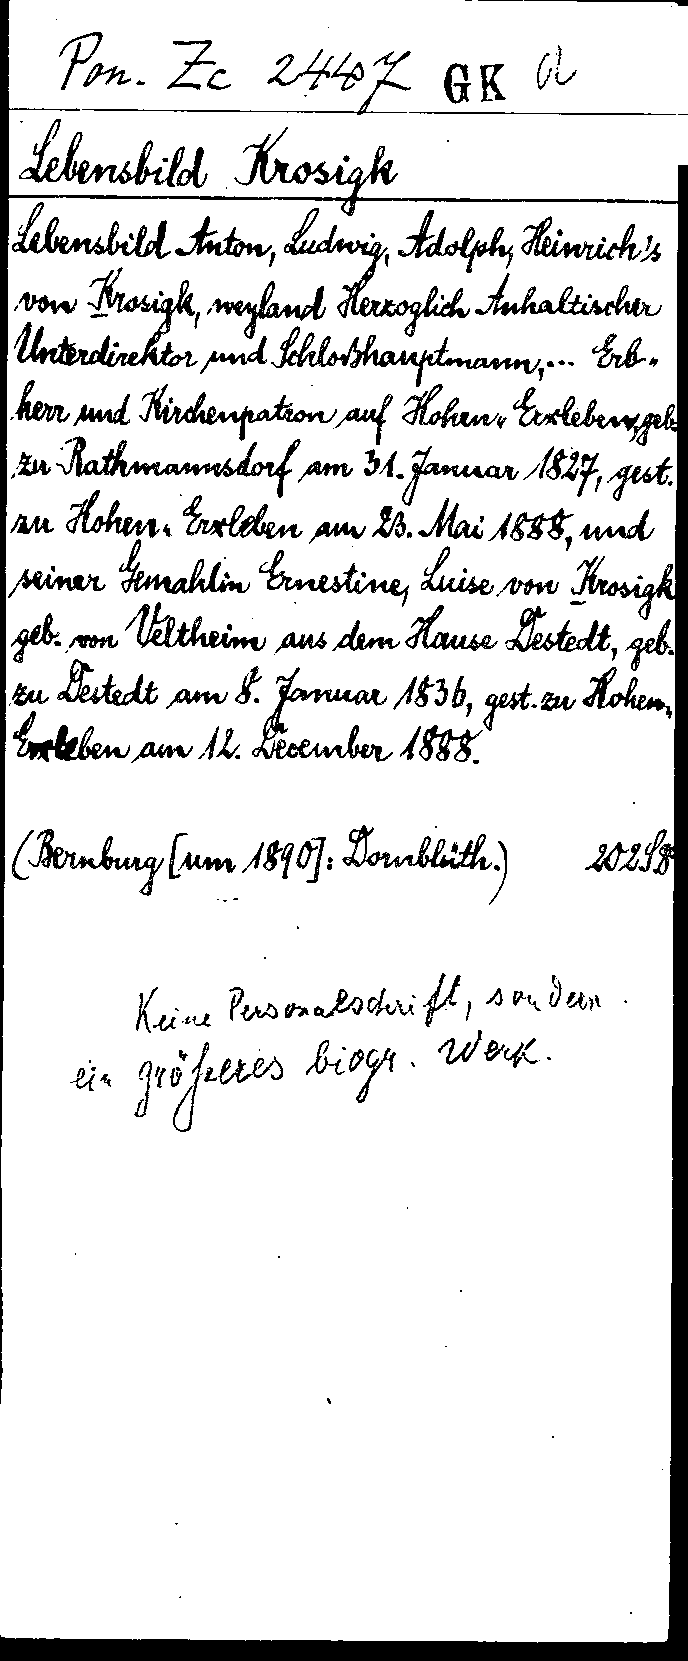 Pon. Zc 2447 GK a
Lebensbild Krosigk
Lebensbild Anton, Ludwig, Adolph, Heinrich's
von Krosigk, weyland Herzoglich Anhaltischer
Unterdirektor und Schloßhauptmann,... Erb-
herr und Kirchenpatron auf Hohen-Erxleben, geb.
zu Rathmannsdorf am 31. Januar 1827, gest.
zu Hohen-Erxleben am 23. Mai 1888, und
seiner Gemahlin Ernestine, Luise von Krosigk
geb. von Veltheim aus dem Hause Destedt, geb.
zu Destedt am 8. Januar 1836, gest. zu Hohen-
Erxleben am 12. December 1888.
(Bernburg [um 1890]: Dornblüth.) 202S8
Keine Personalschrift, sondern
ein größeres biogr. Werk.